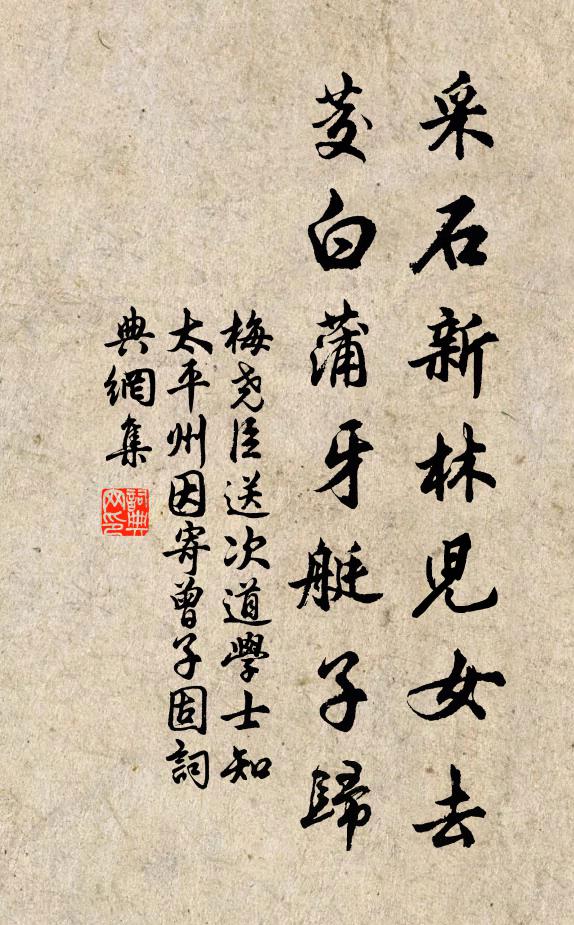 采石新林児女去
茭白蒲牙艇子歸
梅尧臣送次道學士知
太平州因寄曾子固詞
典網集
詞典
网印